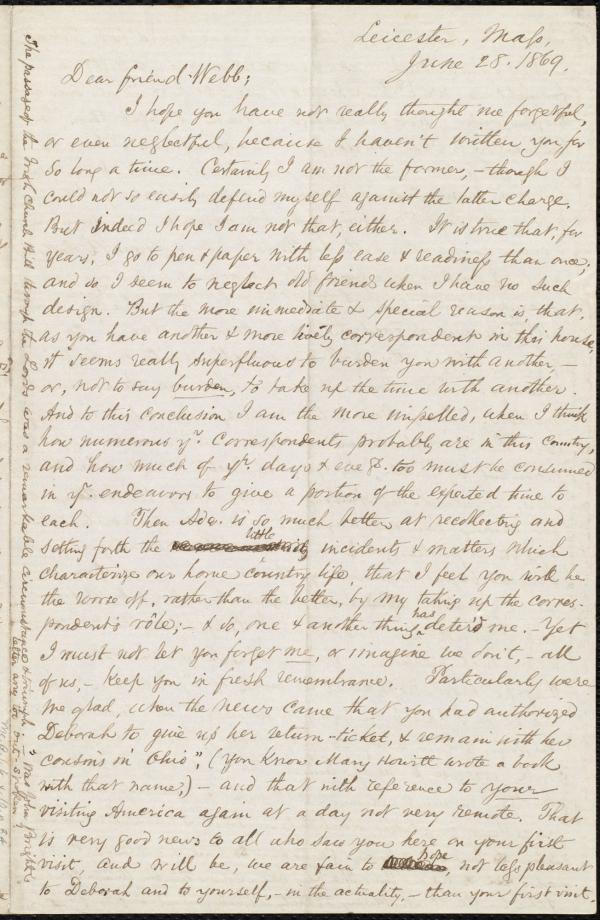 Leicester, Mass,
June 28. 1869.
Dear friend Webb;
I hope you have not really thought me forgetful,
or even neglectful, because I haven't written you for
so long a time. Certainly I am not the former, – though I
could not so easily defend myself against the latter charge.
But indeed I hope I am not that, either. It is true that, for
years, I go to pen & paper with less ease & readiness than once;
and so I seem to neglect old friends when I have no such
design. But the more immediate & special reason is, that,
as you have another & more lively correspondent in this house,
it seems really superfluous to burden you with another, –
or, not to say burden, to take up the time with another.
And to this conclusion I am the more impelled, when I think
how numerous yr. correspondents probably are in this country,
and how much of yr. days & eveg.s. too must be consumed
in yr. endeavors to give a portion of the expected time to
each. Then Ade. is so much better at recollecting and
setting forth the little incidents & matters which
characterize our home country life, that I feel you will be
the worse off, rather than the better, by my taking up the corres-
pondent's rôle; – & so, one & another thing has deter'd me. – Yet
I must not let you forget me, or imagine we don't, – all
of us, – keep you in fresh remembrance. Particularly were
we glad, when the news came that you had authorized
Deborah to give up her return-ticket, & remain with her
"cousins in Ohio", (you know Mary Howitt wrote a book
with that name,) – and that with reference to your
visiting America again at a day not very remote. That
is very good news to all who saw you here on your first
visit, and will be, we are fain to hope, not less pleasant
to Deborah and to yourself, – in the actuality, – than your first visit.
The passage of the Irish Church Bill through the Lords was a remarkable circumstance & triumph. Was John Bright's
letter any too out-spoken